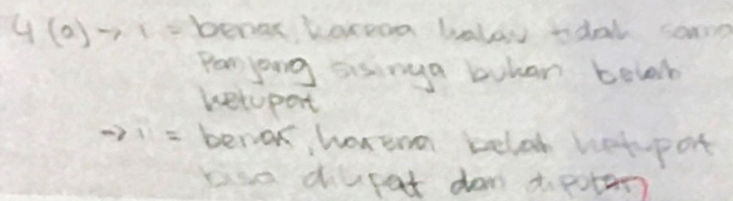 4 (a) → i = benar, karena kalau tidak sama
Panjang sisinya bukan belah
ketupat
→ i = benar, karena belah ketupat
bisa dilipat dan diputar